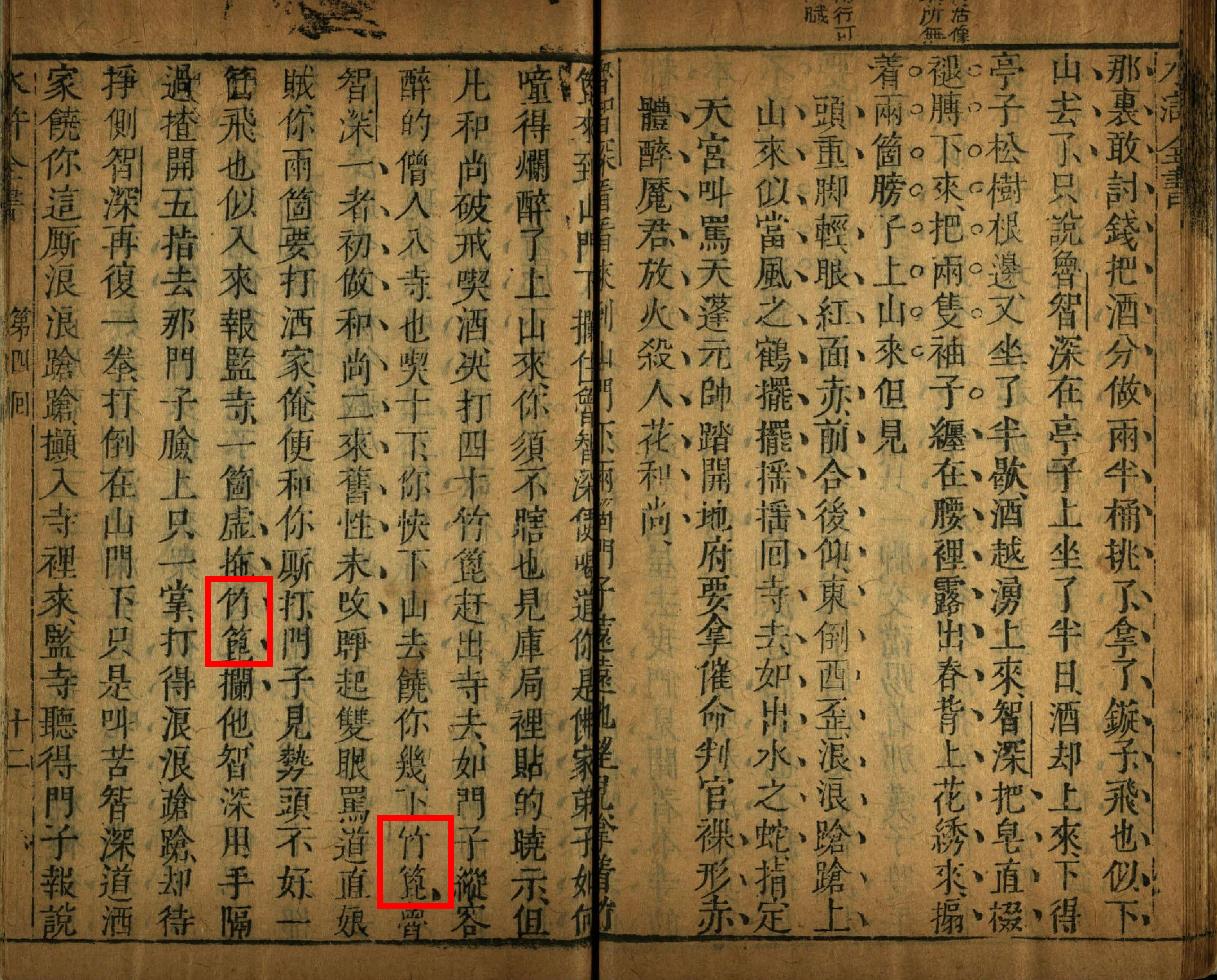 那裏敢討錢把酒分做兩半桶挑了拿了鏇子飛也似下
山去了只說魯智深在亭子上坐了半日酒却上來下得
亭子松樹根邊又坐了半歇酒越湧上來智深把皂直裰
褪膊下來把兩隻袖子纏在腰裡露出脊背上花綉來搧
着兩箇膀子上山來但見
頭重脚輕眼紅面赤前合後仰東倒西歪浪浪蹌蹌上
山來似當風之鶴擺擺揺揺回寺去如出水之蛇指定
天宮叫罵天蓬元帥踏開地府要拿催命判官裸形赤
體醉魔君放火殺人花和尚
篦來到山門下攔住魯智深便喝道你是佛家弟子如何
噇得爛醉了上山來你須不瞎也見庫局裡貼的曉示但
凡和尚破戒喫酒决打四十竹篦赶出寺去如門子縱容
醉的僧人入寺也喫十下你快下山去饒你幾下竹篦魯
智深一者初做和尚二來舊性未改睜起雙眼罵道直娘
賊你兩箇要打洒家俺便和你厮打門子見勢頭不好一
箇飛也似入來報監寺一箇虛拖竹篦攔他智深用手隔
過揸開五指去那門子臉上只一掌打得浪浪蹌蹌却待
掙側智深再復一拳打倒在山門下只是叫苦智深道洒
家饒你這厮浪浪蹌蹌攧入寺裡來監寺聽得門子報說
水滸全書 第四回 十二